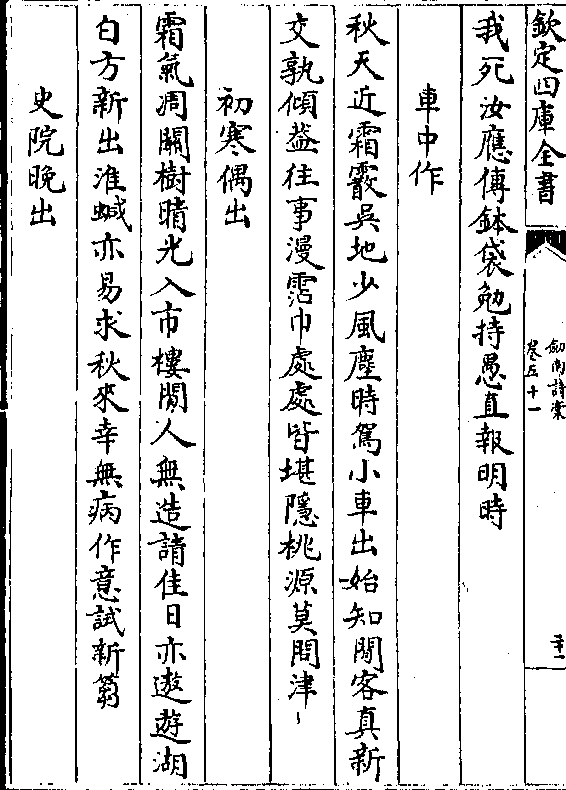 欽定四庫全書
劍南詩稾
卷五十一
我死汝應傳鉢袋勉持愚直報明時
車中作
秋天近霜霰吳地少風塵時駕小車出始知閒客真新
交孰傾葢往事漫霑巾處處皆堪隱桃源莫問津
初寒偶出
霜氣凋關樹晴光入市樓閒人無造請佳日亦遨遊湖
白方新出淮䖆亦易求秋來幸無病作意試新篘
史院晚出